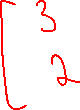 [3
2